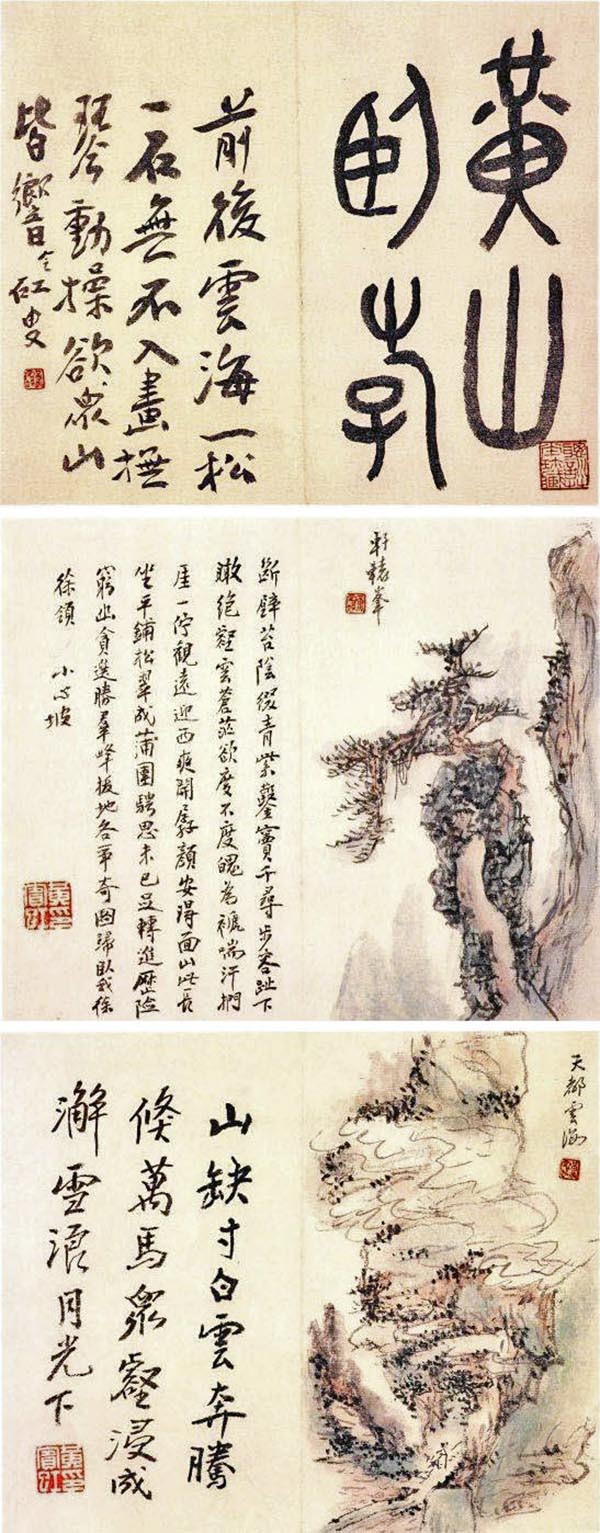 黃山
臥斿
前後雲海一松
一石無不入畫撫
琴動操欲衆山
皆響 令 虹叟
軒轅峯
斷壁苔陰綴青紫鑿竇千尋步容趾下
瞰絕壑雲蒼茫欲度不度魄為褫喘汗捫
厓一佇觀遠迎西爽開孱顏安得面山此長
坐平鋪松翠成蒲團騁思未已足轉進歷險
窮幽貪選勝羣峰拔地各爭奇圖歸臥我徐
徐領 小心坡
天都雲海
山缺寸白雲奔騰
倐萬馬衆壑浸成
澥雪浪月光下